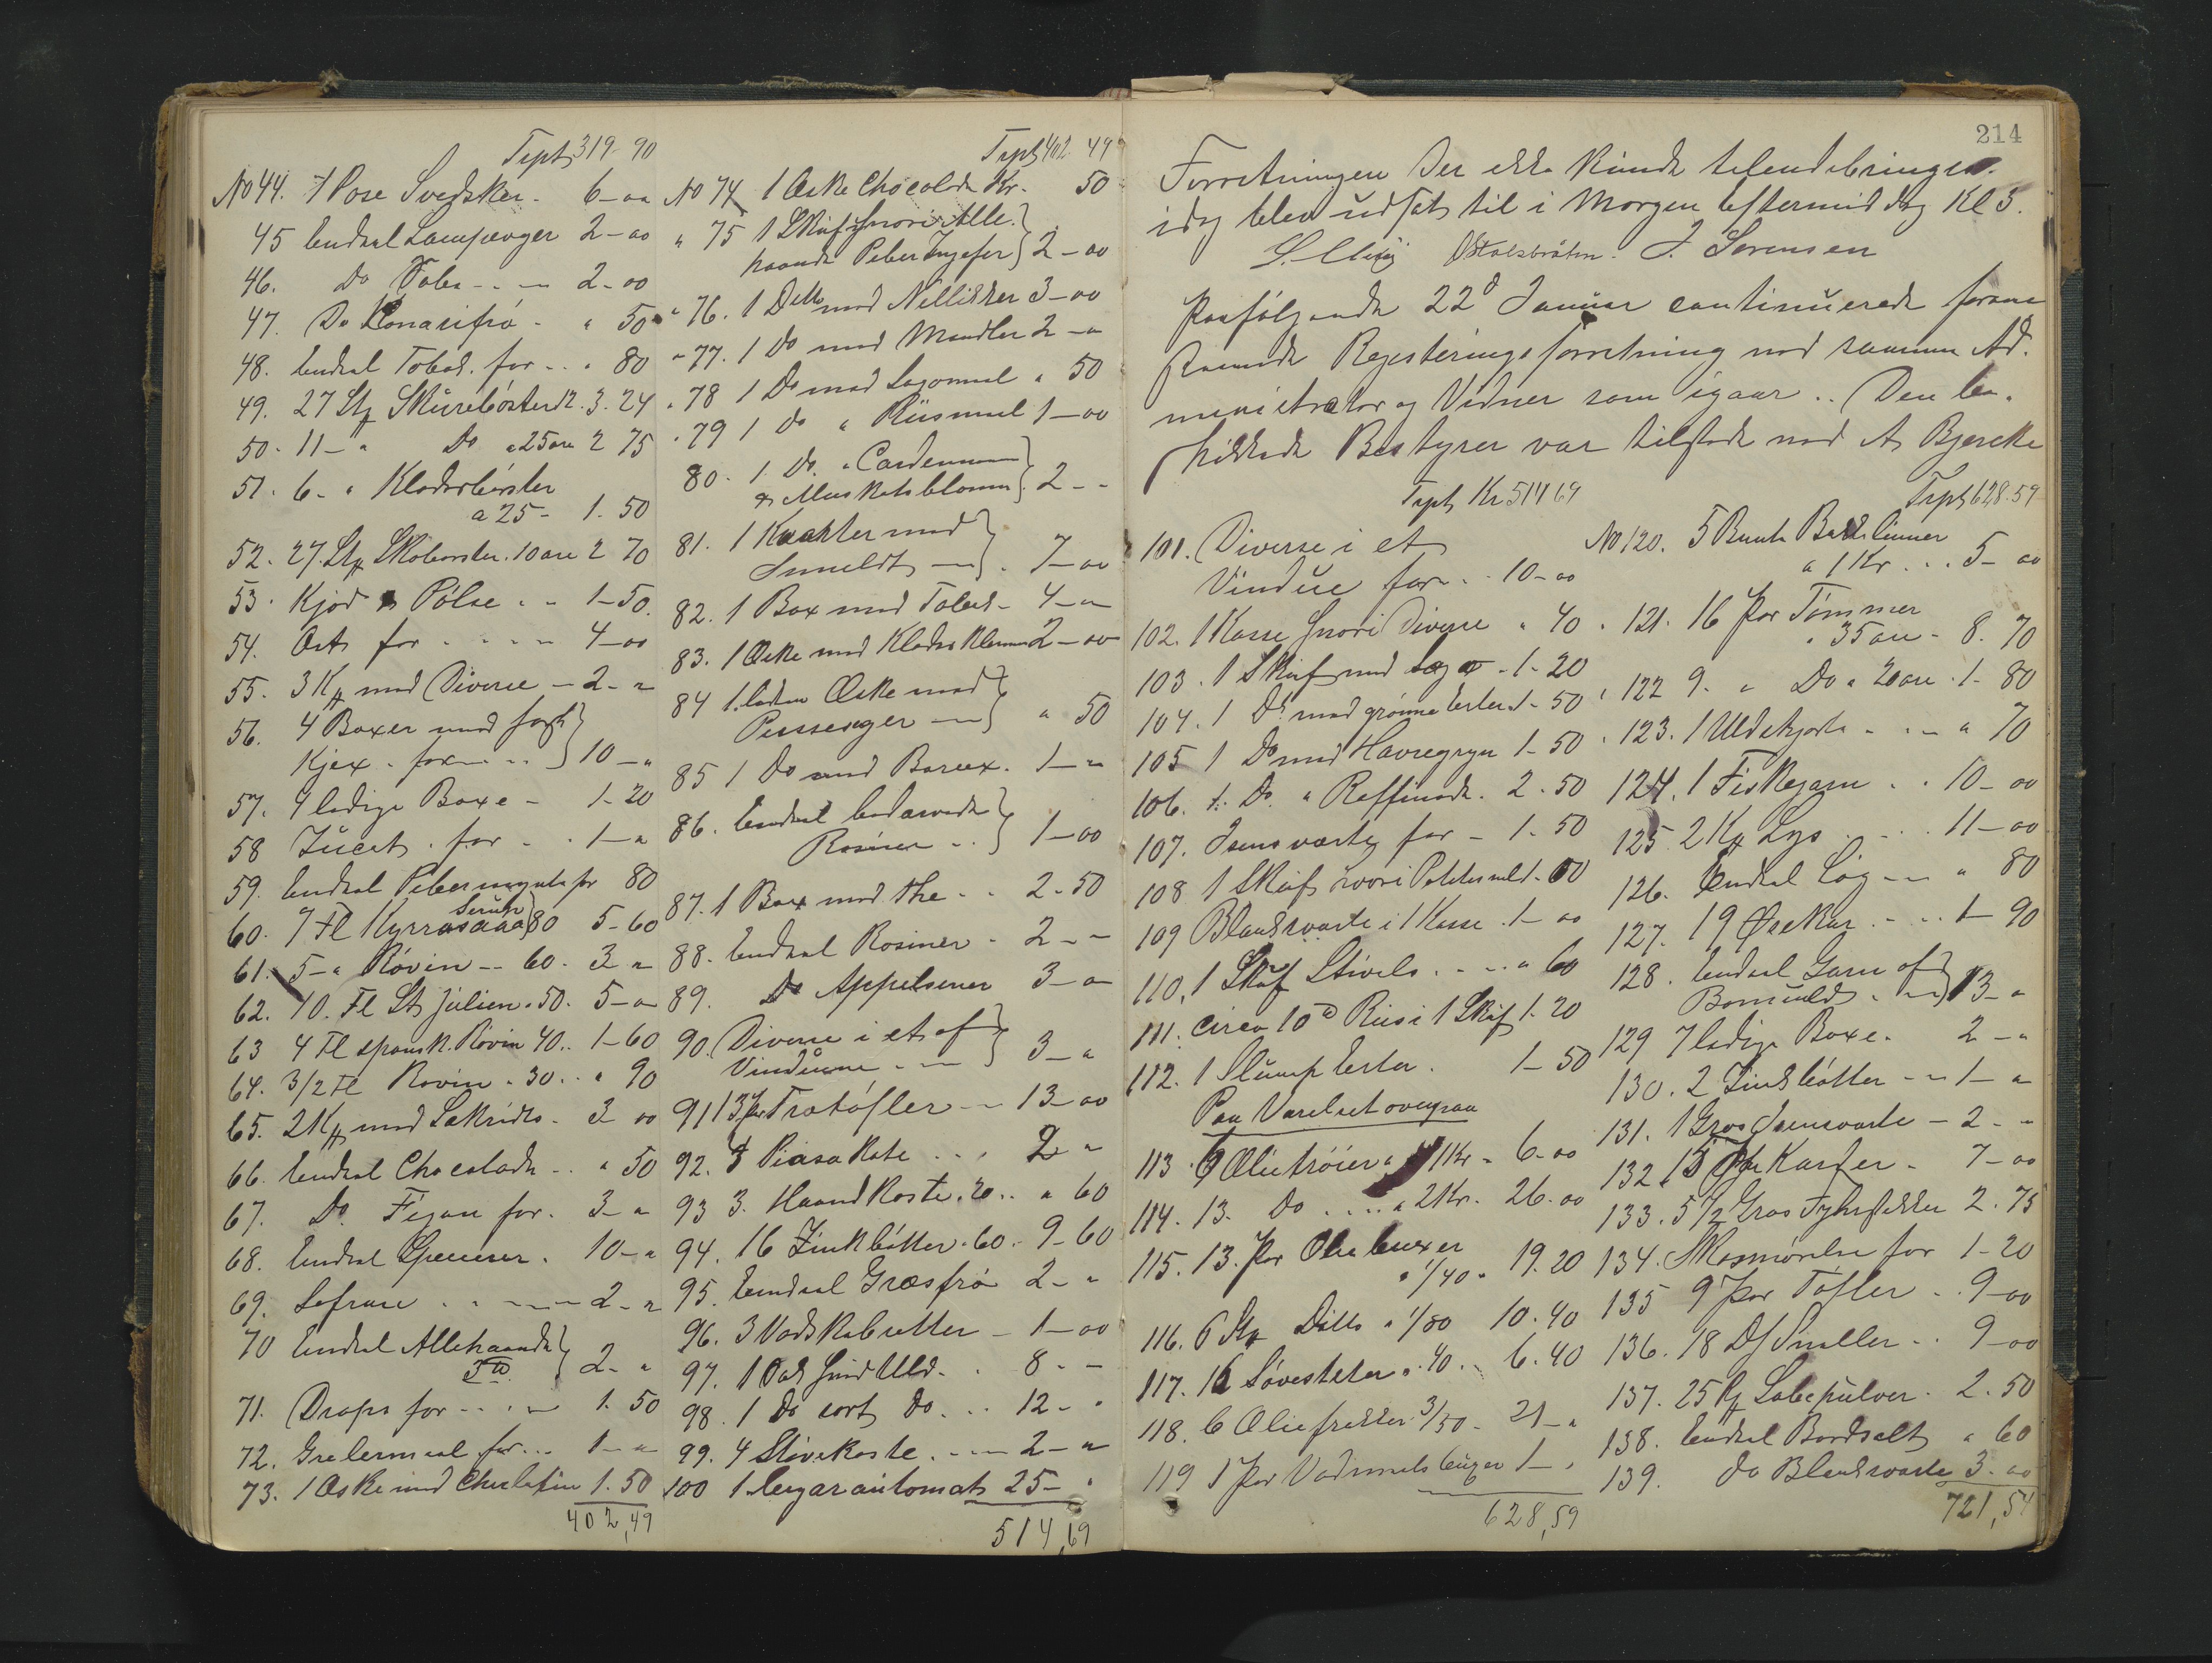 Trpt 319-90
No 44. 1 Pose Svedsker - 6-00
45 Endeel Lampevæger 2-00
46. Do Tobe - - - 2-00
47. Do Konarifrö - " 50
48. Endeel Tobak for - - " 80
49. 27 Stk Skurebörster 12. 3.24
50. 11 - " Do a 25 øre 2 75
51. 6 - " Klædesbörster
a 25 - 1.50
52. 27 Stk Skobørster 10 øre 2 70
53. Kjød & Pølse - - 1-50.
54. Ost for - - - - 4-00
55. 3 K\ med Diverse - 2 - "
56. 4 Boxer med
Kjex - for - - - 10 - "
57. 4 ledige Boxe - 1-20
58 for - - 1 - "
59. Endeel Pebermynte for 80
60. 7 Fl Kyrrasaaa Seruft 80 5-60
61. 5 - " Rövin - - 60. 3 "
62. 10. Fl St Julien. 50. 5 - "
63 4 Fl spansk. Rövin 40. 1-60
64. 3/2 Fl Rovin. 30. . " 90
65. 2 K\ med Lakrids. 3 00
66. Endeel Chocolade - - " 50
67. Do. Figen for. 3 - "
68. Endeel 10 - "
69. Safran . . - - - 2 - "
70 Endeel Allehaande
2 - "
71. Drops for - - - 1.50
72. for - - 1 - "
73. 1 Æske med 1.50
402,49
Trpt 402 49
No 74 1 Æske Chocolade Kr. 50
" 75 1 Skuf hvori Alle-
haande Peber Ingefer 2-00
" 76. 1 Ditto med Nelliker 3-00
" 77. 1 Do med Mandler 2 - "
" 78 1 Do med Sagomeel " 50
" 79 1 do " Riismeel 1-00
80. 1. Do. " Cardemomme
& Muskatsblomme 2 - -
81. 1 med
- 7-00
82. 1 Box med Tobak - 4 - "
83. 1 Æske med Klædesklemmer 2-00
84 1. liden Æske med
- - " 50
85 1 Do med Borax. 1 - "
86. Endeel bedærvede
Rosiner - . 1-00
87. 1 Box med The - . 2-50
88. Endeel Rosiner - 2 - -
89. Do Appelsiner 3 - "
90. Diverse i et af
Vinduerne - - 3 - "
91 13 Par Trætøfler - - 13-00
92. 3 Piasakoste . . . 2 "
93 3. Haandkoste. 20. . " 60
94. 16 Zinkbötter. 60 - 9-60
95. Endeel Græsfrö 2 - "
96. 3 Vadskebretter - 1-00
97. 1 Pak hvid Uld. . 8 - -
98. 1 do sort Do. . . 12 - "
99. 4 Stövekoste. - - - 2 - "
100 1 Cigarautomat 25 - "
514,69
214
Forretningen der ikke kunde tilendebringes
idag blev udsat til i Morgen Eftermiddag Kl 3.
J. Sorensen
Paafølgende 22d Januar continuerede foran-
staaende Registeringsforretning med samme Ad-
ministrator og Vidner som igaar. . Den be-
skikkede Bestyrer var tilstede med A. Bjercke
Trpt Kr 514 69
101. Diverse i et
Vindue for. . 10-00
102. 1 Kasse hvori Diverse " 40
103. 1 Skuf med - 1-20
104. 1 Do med grønne Erter 1-50
105 1 Do med Havregryn 1-50
106. 1. Do. " Raffinade. 2.50
107. Ovnsværte for - 1-50
108 1 Skuf hvori Potetmel 1. 00
109 Blanksværte i 1 Kasse. 1-00
110. 1 Skuf Stivels. - - - " 60
111. circa 10 Riis i 1 Skuf 1-20
112. 1 Slump Erter. 1-50
Paa Værelset ovenpaa
113 6 Olietröier " 1 Kr - 6-00
114. 13. Do . . . . " 2 Kr. 26.00
115. 13. Par Oliebuxer
" 1/40 " 19.20
116. 6 Stk Ditto " 1/80 10.40
117. 16 Sövesteter " 40. - 6.40
118. 6 Oliefrakker 3/50 - 21 - "
119 1 Par Vadmelsbuxer 1 - "
628,59
Trpt 628.59
No 120. 5 Bunte Bakkelinner
a 1 Kr . . . 5-00
" 121. 16 Par Tömmer
" 35 øre - 8. 70
" 122 9. " Do " 20 øre. 1-80
" 123. 1 Uldskjorte - . . - " 70
124. 1 Fiskegarn . . 10-00
125. 2 K\ Lys . - . . 11-00
126. Endeel Løg - - " 80
127. 19 Øsekar. - . . 1-90
128. Endeel Garn af
Bomuld . - - 13 - "
129 7 ledige Boxe. 2 - "
130. 2 Zinkbötter - - 1 - "
131. 1 Gros Ovnsværte - 2 - -
132 15 - 7-00
133. 5 1/2 Gros Fyrstikker 2.75
134. Skosmørelse for 1-20
135 9 Par Töfler - . 9-00
136. 18 D\ Smeller - . 9-00
137. 25 Sæbepulver. 2.50
138. Endeel Bordsalt " 60
139. do Blanksværte 3-00
721,54